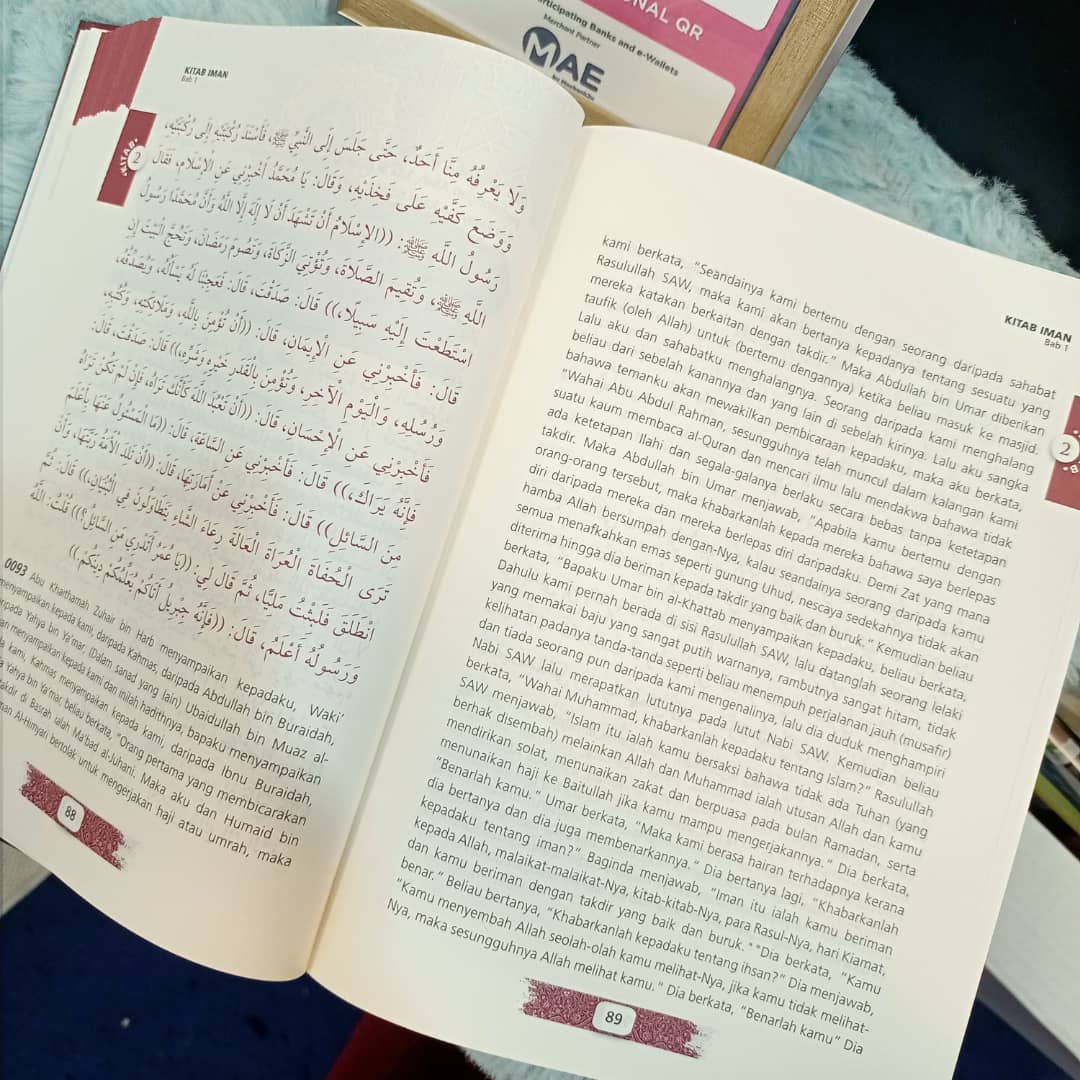 ONAL QR
rticipating Banks and e-Wallets
Merchant Partner
MAE
by Maybank2u
KITAB IMAN
Bab 1
KITAB
2
وَلَا يَعْرِفُهُ مِنَّا أَحَدٌ، حَتَّى جَلَسَ إِلَى النَّبِيِّ ﷺ، فَأَسْنَدَ رُكْبَتَيْهِ إِلَى رُكْبَتَيْهِ،
وَوَضَعَ كَفَّيْهِ عَلَى فَخِذَيْهِ، وَقَالَ: يَا مُحَمَّدُ أَخْبِرْنِي عَنِ الإِسْلَامِ، فَقَالَ
رَسُولُ اللَّهِ ﷺ: ((الإِسْلَامُ أَنْ تَشْهَدَ أَنْ لَا إِلَهَ إِلَّا اللَّهُ وَأَنَّ مُحَمَّدًا رَسُولُ
اللَّهِ ﷺ، وَتُقِيمَ الصَّلَاةَ، وَتُؤْتِيَ الزَّكَاةَ، وَتَصُومَ رَمَضَانَ، وَتَحُجَّ الْبَيْتَ إِنِ
اسْتَطَعْتَ إِلَيْهِ سَبِيلًا،)) قَالَ: صَدَقْتَ، قَالَ: فَعَجِبْنَا لَهُ يَسْأَلُهُ، وَيُصَدِّقُهُ،
قَالَ: فَأَخْبِرْنِي عَنِ الْإِيمَانِ، قَالَ: ((أَنْ تُؤْمِنَ بِاللَّهِ، وَمَلَائِكَتِهِ، وَكُتُبِهِ،
وَرُسُلِهِ، وَالْيَوْمِ الْآخِرِ، وَتُؤْمِنَ بِالْقَدَرِ خَيْرِهِ وَشَرِّهِ،)) قَالَ: صَدَقْتَ، قَالَ:
فَأَخْبِرْنِي عَنِ الْإِحْسَانِ، قَالَ: ((أَنْ تَعْبُدَ اللَّهَ كَأَنَّكَ تَرَاهُ، فَإِنْ لَمْ تَكُنْ تَرَاهُ
فَإِنَّهُ يَرَاكَ،)) قَالَ: فَأَخْبِرْنِي عَنِ السَّاعَةِ، قَالَ: ((مَا الْمَسْئُولُ عَنْهَا بِأَعْلَمَ
مِنَ السَّائِلِ)) قَالَ: فَأَخْبِرْنِي عَنْ أَمَارَتِهَا، قَالَ: ((أَنْ تَلِدَ الْأَمَةُ رَبَّتَهَا، وَأَنْ
تَرَى الْحُفَاةَ الْعُرَاةَ الْعَالَةَ رِعَاءَ الشَّاءِ يَتَطَاوَلُونَ فِي الْبُنْيَانِ،)) قَالَ: ثُمَّ
انْطَلَقَ فَلَبِثْتُ مَلِيًّا، ثُمَّ قَالَ لِي: ((يَا عُمَرُ أَتَدْرِي مَنِ السَّائِلُ؟)) قُلْتُ: اللَّهُ
وَرَسُولُهُ أَعْلَمُ، قَالَ: ((فَإِنَّهُ جِبْرِيلُ أَتَاكُمْ يُعَلِّمُكُمْ دِينَكُمْ.))
0093 Abu Khaithamah Zuhair bin Harb menyampaikan kepadaku, Waki'
menyampaikan kepada kami, daripada Kahmas, daripada Abdullah bin Buraidah,
daripada Yahya bin Ya'mar. (Dalam sanad yang lain) Ubaidullah bin Muaz al-
menyampaikan kepada kami dan inilah hadithnya, bapaku menyampaikan
kami, Kahmas menyampaikan kepada kami, daripada Ibnu Buraidah,
Yahya bin Ya'mar, beliau berkata, "Orang pertama yang membicarakan
takdir di Basrah ialah Ma'bad al-Juhani. Maka aku dan Humaid bin
man Al-Himyari bertolak untuk mengerjakan haji atau umrah, maka
88
KITAB IMAN
Bab 1
2
kami berkata, "Seandainya kami bertemu dengan seorang daripada sahabat
Rasulullah SAW, maka kami akan bertanya kepadanya tentang sesuatu yang
mereka katakan berkaitan dengan takdir." Maka Abdullah bin Umar diberikan
taufik (oleh Allah) untuk (bertemu dengannya) ketika beliau masuk ke masjid.
Lalu aku dan sahabatku menghalangnya. Seorang daripada kami menghalang
beliau dari sebelah kanannya dan yang lain di sebelah kirinya. Lalu aku sangka
bahawa temanku akan mewakilkan pembicaraan kepadaku, maka aku berkata,
"Wahai Abu Abdul Rahman, sesungguhnya telah muncul dalam kalangan kami
suatu kaum membaca al-Quran dan mencari ilmu lalu mendakwa bahawa tidak
ada ketetapan Ilahi dan segala-galanya berlaku secara bebas tanpa ketetapan
takdir. Maka Abdullah bin Umar menjawab, "Apabila kamu bertemu dengan
orang-orang tersebut, maka khabarkanlah kepada mereka bahawa saya berlepas
diri daripada mereka dan mereka berlepas diri daripadaku. Demi Zat yang mana
hamba Allah bersumpah dengan-Nya, kalau seandainya seorang daripada kamu
semua menafkahkan emas seperti gunung Uhud, nescaya sedekahnya tidak akan
diterima hingga dia beriman kepada takdir yang baik dan buruk." Kemudian beliau
berkata, "Bapaku Umar bin al-Khattab menyampaikan kepadaku, beliau berkata,
Dahulu kami pernah berada di sisi Rasulullah SAW, lalu datanglah seorang lelaki
yang memakai baju yang sangat putih warnanya, rambutnya sangat hitam, tidak
kelihatan padanya tanda-tanda seperti beliau menempuh perjalanan jauh (musafir)
dan tiada seorang pun daripada kami mengenalinya, lalu dia duduk menghampiri
Nabi SAW, lalu merapatkan lututnya pada lutut Nabi SAW. Kemudian beliau
berkata, "Wahai Muhammad, khabarkanlah kepadaku tentang Islam?" Rasulullah
SAW menjawab, "Islam itu ialah kamu bersaksi bahawa tidak ada Tuhan (yang
berhak disembah) melainkan Allah dan Muhammad ialah utusan Allah dan kamu
mendirikan solat, menunaikan zakat dan berpuasa pada bulan Ramadan, serta
menunaikan haji ke Baitullah jika kamu mampu mengerjakannya." Dia berkata,
"Benarlah kamu." Umar berkata, "Maka kami berasa hairan terhadapnya kerana
dia bertanya dan dia juga membenarkannya." Dia bertanya lagi, "Khabarkanlah
kepadaku tentang iman?" Baginda menjawab, "Iman itu ialah kamu beriman
kepada Allah, malaikat-malaikat-Nya, kitab-kitab-Nya, para Rasul-Nya, hari Kiamat,
dan kamu beriman dengan takdir yang baik dan buruk." "Dia berkata, "Kamu
benar." Beliau bertanya, "Khabarkanlah kepadaku tentang ihsan?" Dia menjawab,
"Kamu menyembah Allah seolah-olah kamu melihat-Nya, jika kamu tidak melihat-
Nya, maka sesungguhnya Allah melihat kamu." Dia berkata, "Benarlah kamu" Dia
89